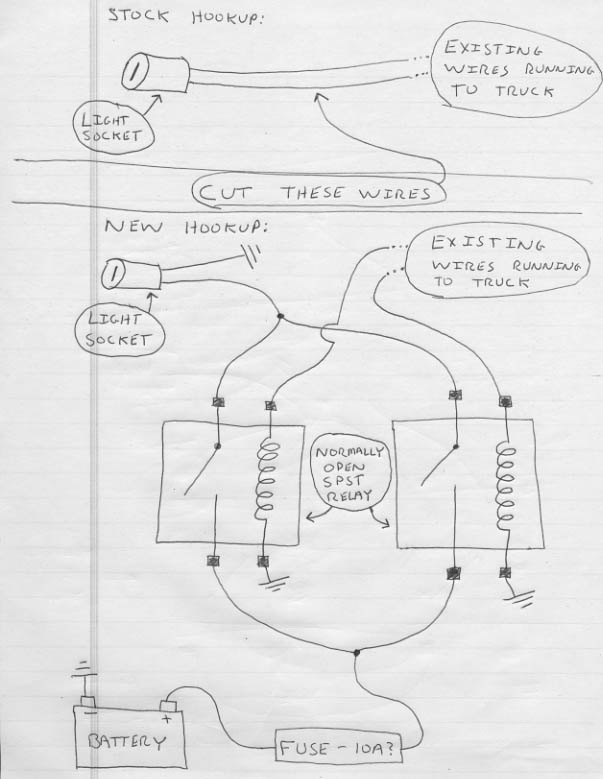 STOCK HOOKUP:
EXISTING
WIRES RUNNING
TO TRUCK
LIGHT
SOCKET
CUT THESE WIRES
NEW HOOKUP:
EXISTING
WIRES RUNNING
TO TRUCK
LIGHT
SOCKET
NORMALLY
OPEN
SPST
RELAY
- +
BATTERY
FUSE - 10A?